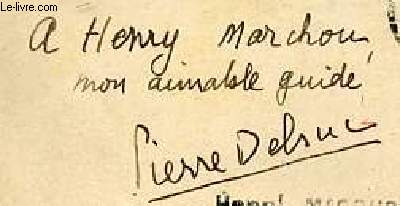 Le-livre.com
A Henry Marchou
mon aimable guide,
Pierre Delsuc
Henri